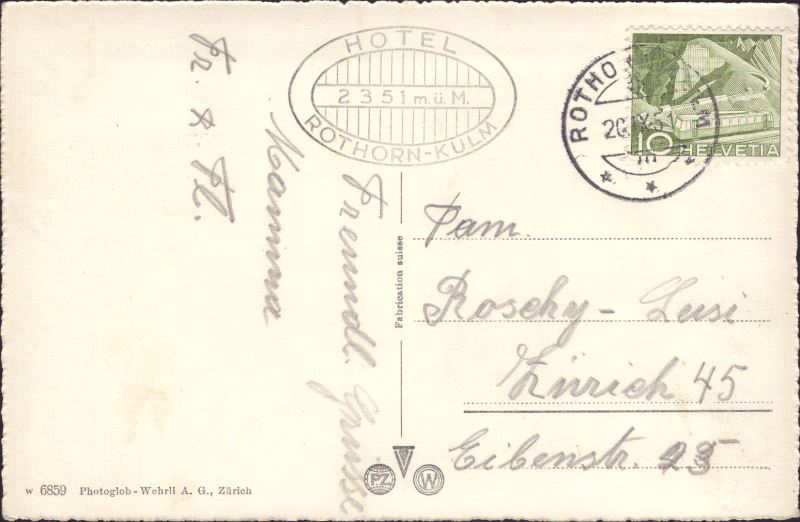 HOTEL
2351 m.ü.M.
ROTHORN-KULM
ROTHO
20. 51
10 HELVETIA
Freundl. Grüsse
Mamma
Fabrication suisse
Fam.
Roschy-Lusi
Zürich 45
Eibenstr. 25
PZ
W
w 6859 Photoglob-Wehrli A. G., Zürich